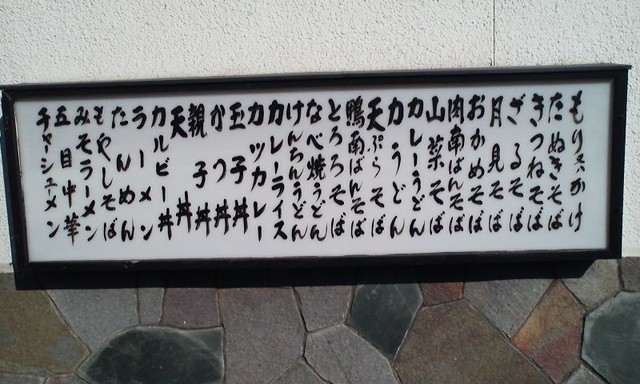 もり・かけ
たぬきそば
きつねそば
ざるそば
月見そば
おかめそば
肉南ばんそば
山菜そば
カレーうどん
力うどん
天ぷらそば
鴨南ばんそば
とろろそば
なべ焼うどん
けんちんうどん
カレーライス
カツカレー
玉子丼
かつ丼
親子丼
天丼
カルビー丼
ラーメン
たんめん
もやしそば
みそラーメン
五目中華
チャシューメン